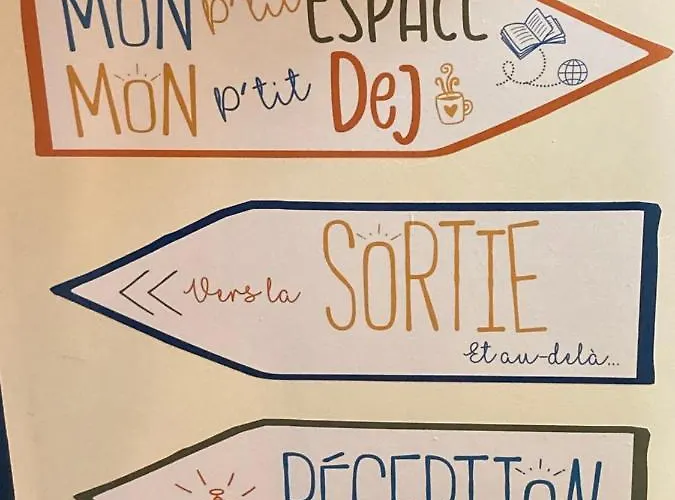 MON p'tit ESPACE
MON p'tit DEJ
Vers la SORTIE
Et au-delà...
RÉCEPTION